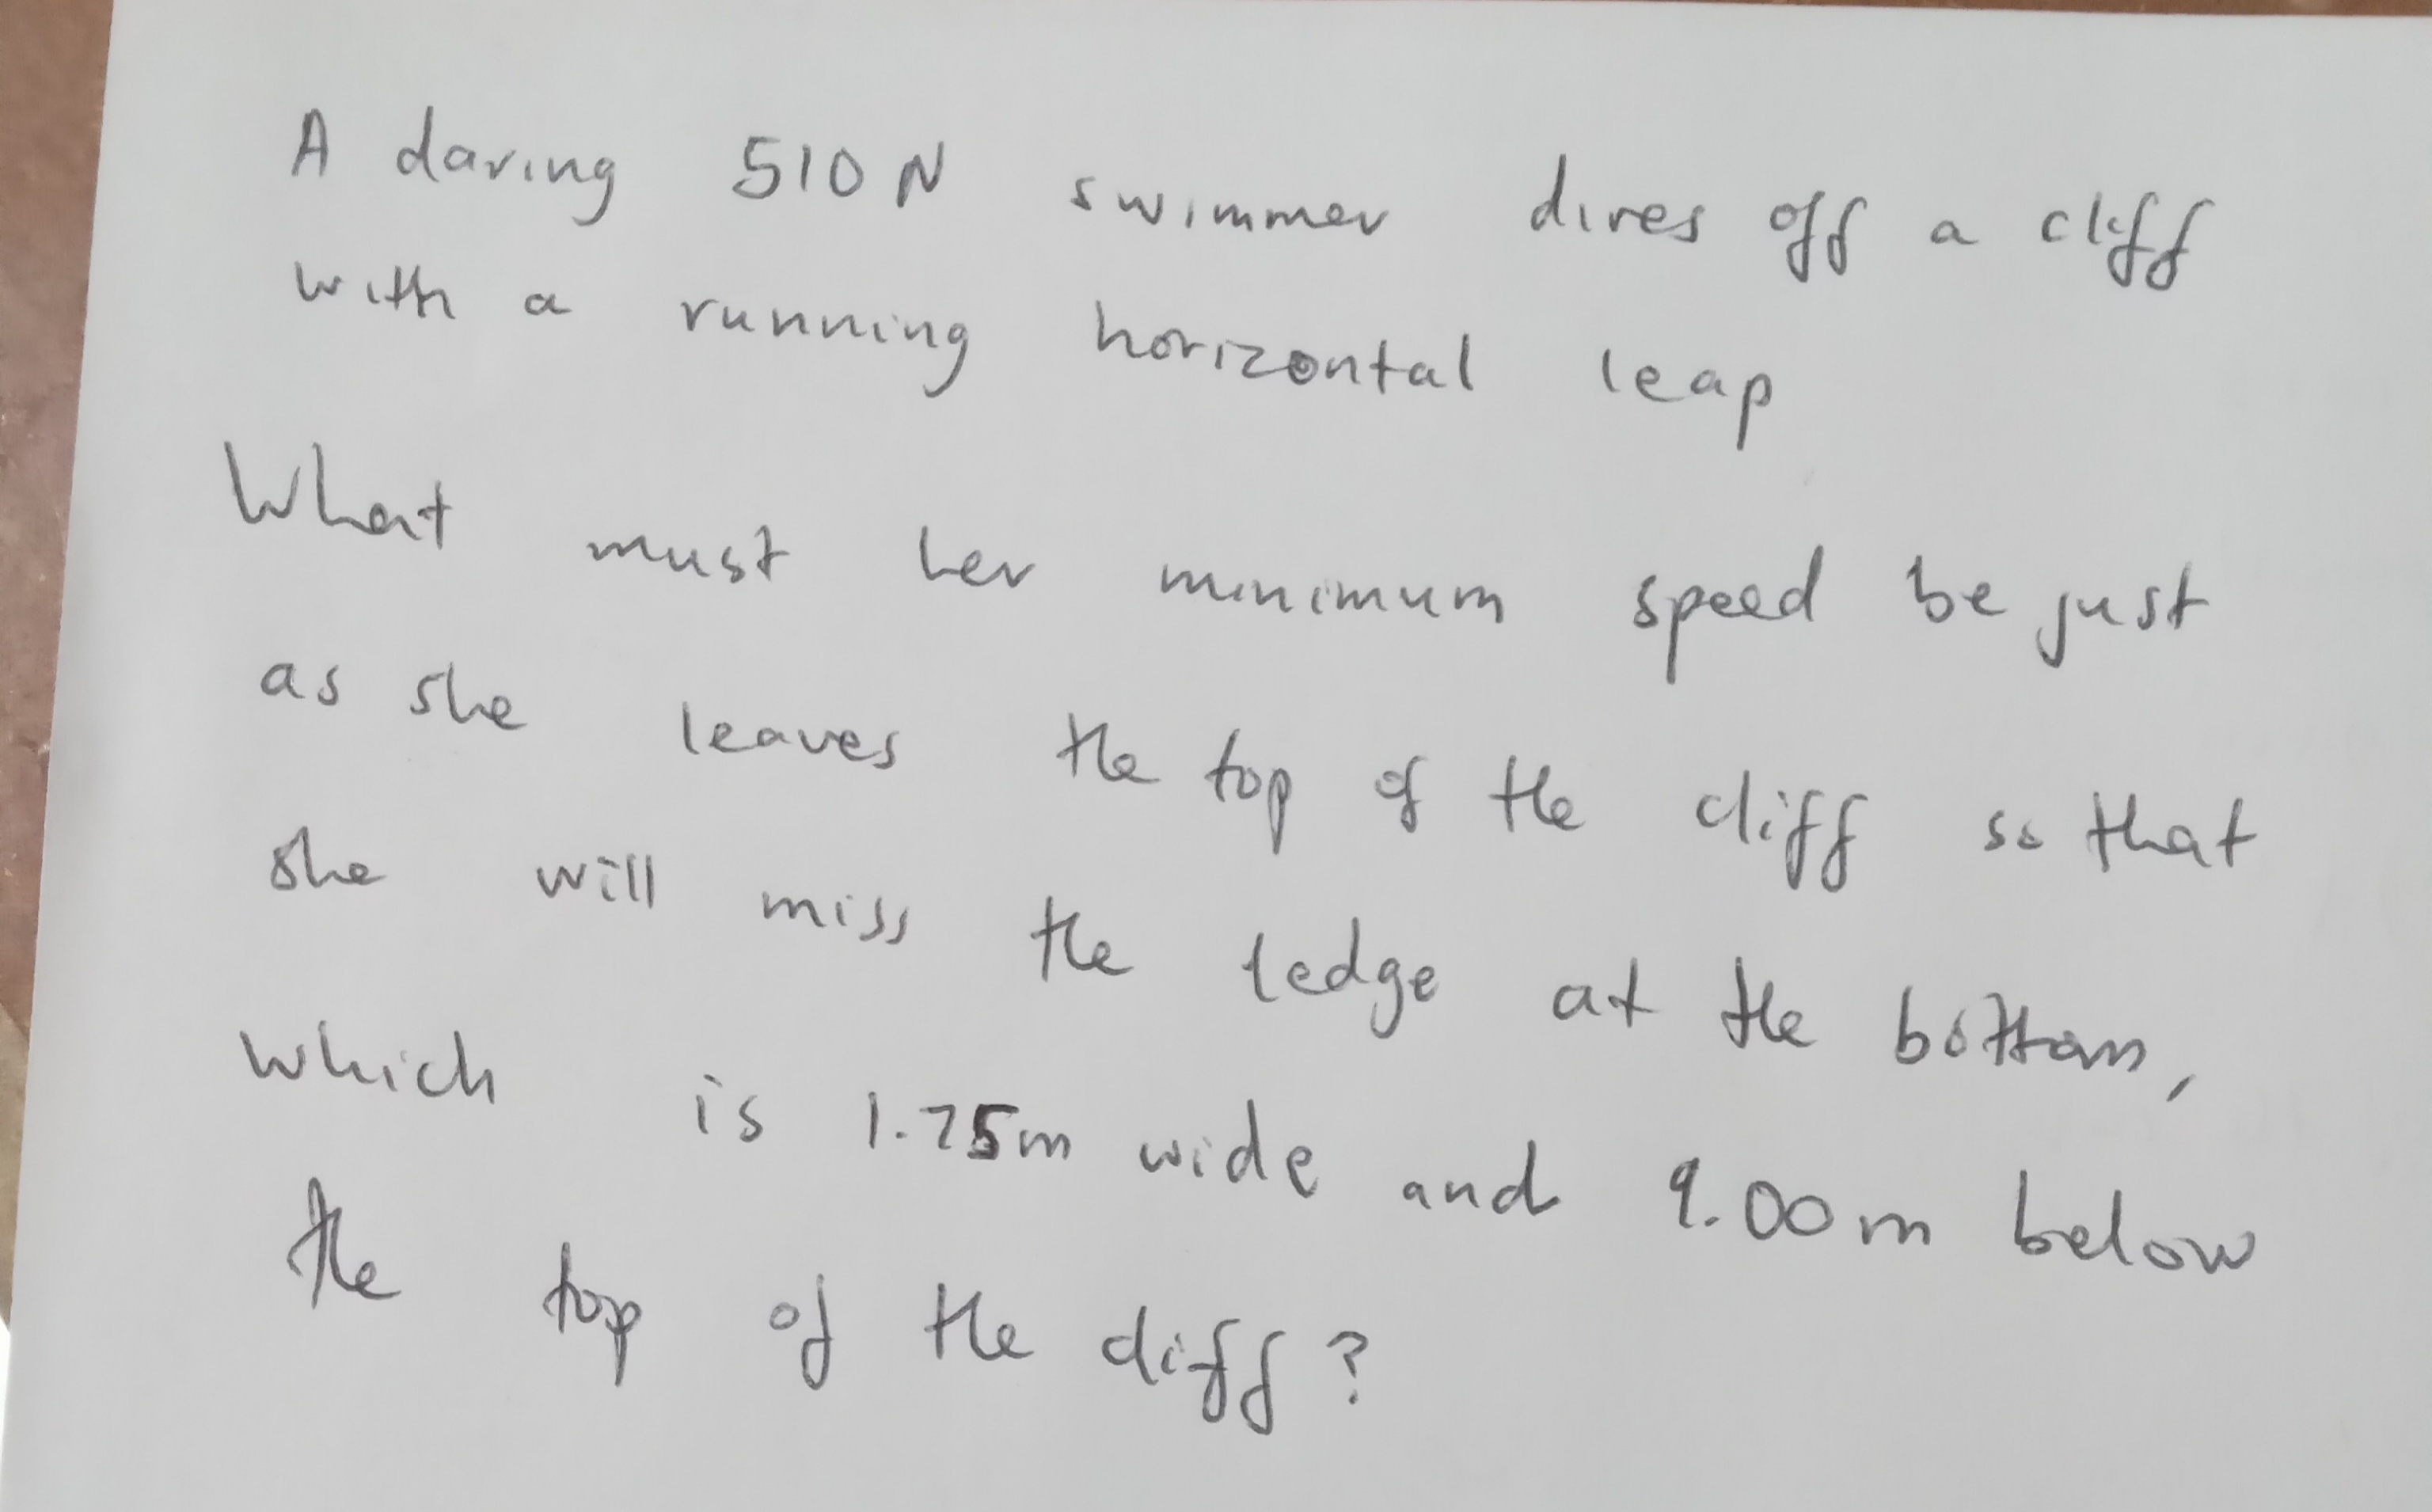 A daring 510 N swimmer dives off a cliff
with a running horizontal leap
What must her minimum speed be just
as she leaves the top of the cliff so that
she will miss the ledge at the bottom,
which is 1.75m wide and 9.00 m below
the top of the cliff?